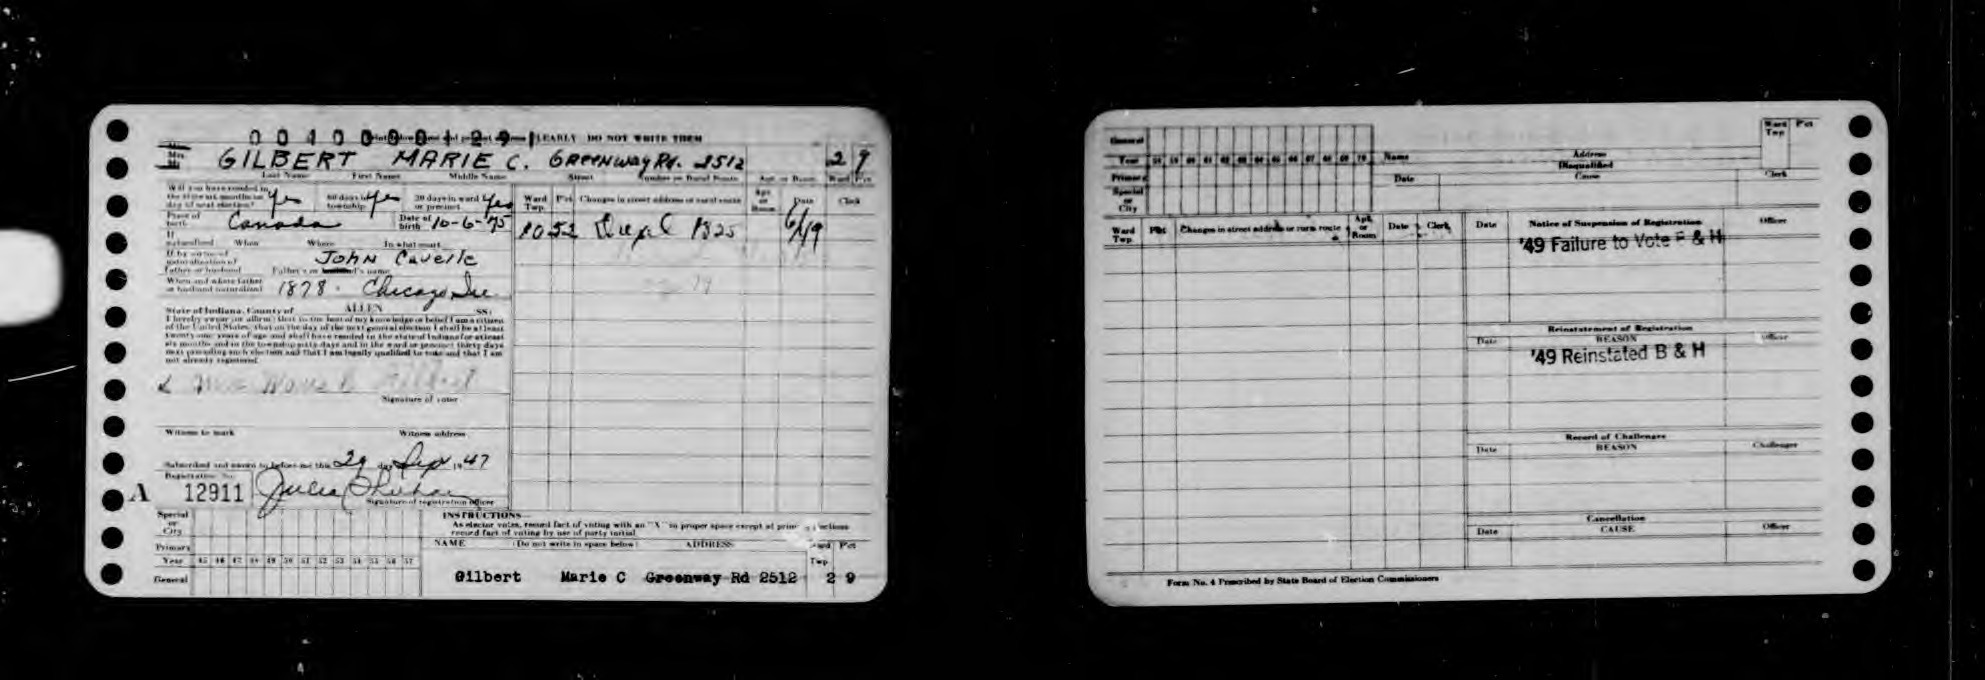 0040000129
CLEARLY DO NOT WRITE THEM
Mrs
GILBERT MARIE C. GREENWAY Rd. 2512 2 9
Last Name First Name Middle Name Street Number or Rural Route Apt. or Room Ward Pct
Will you have resided in the state six months on day of next election? Yes 60 days in township Yes 30 days in ward or precinct Yes
Ward Twp. Pct Changes in street address or rural route Apt. or Room Date Clerk
Place of birth Canada Date of birth 10-6-75
1825 6/
If naturalized When Where In what court
If by virtue of naturalization of father or husband John
Father's or husband's name
When and where father or husband naturalized 1878. Chicago
State of Indiana, County of ALLEN SS:
I hereby swear (or affirm) that to the best of my knowledge or belief I am a citizen
of the United States, that on the day of the next general election I shall be at least
twenty-one years of age and shall have resided in the state of Indiana for at least
six months and in the township sixty days and in the ward or precinct thirty days
next preceding such election and that I am legally qualified to vote and that I am
not already registered.
Gilbert
Signature of voter
Witness to mark Witness address
Subscribed and sworn to before me this 29 day Sep 1947
Registration No.
A 12911 Julia
Signature of registration officer
Special or City
Primary
Year 45 46 47 48 49 50 51 52 53 54 55 56 57
General
INSTRUCTIONS—
As elector votes, record fact of voting with an "X" in proper space except at primary elections
record fact of voting by use of party initial.
NAME (Do not write in space below) ADDRESS Ward Twp Pct
Gilbert Marie C Greenway Rd 2512 2 9
General
Year 58 59 60 61 62 63 64 65 66 67 68 69 70
Primary
Special or City
Name Address Ward Twp Pct
Disqualified
Date Cause Clerk
Ward Twp. Pct Changes in street address or rural route Apt. or Room Date Clerk
Date Notice of Suspension of Registration Officer
'49 Failure to Vote B & H
Reinstatement of Registration
Date REASON Officer
'49 Reinstated B & H
Record of Challenges
Date REASON Challenger
Cancellation
Date CAUSE Officer
Form No. 4 Prescribed by State Board of Election Commissioners